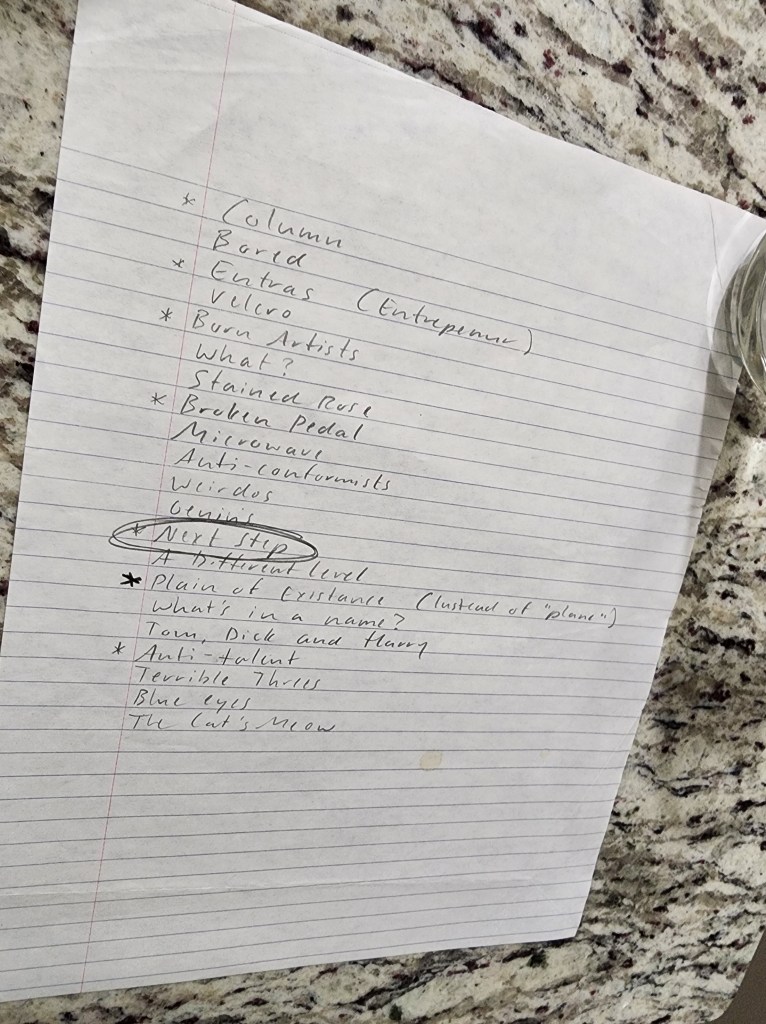 * Column
Bored
* Entras (Entrepenur)
Velcro
* Born Artists
What?
Stained Rose
* Broken Pedal
Microwave
Anti-conformists
Weirdos
Genius
* Next Step
A Different level
* Plain of Existance (Instead of "plane")
What's in a name?
Tom, Dick and Harry
* Anti-talent
Terrible Threes
Blue eyes
The Cat's Meow